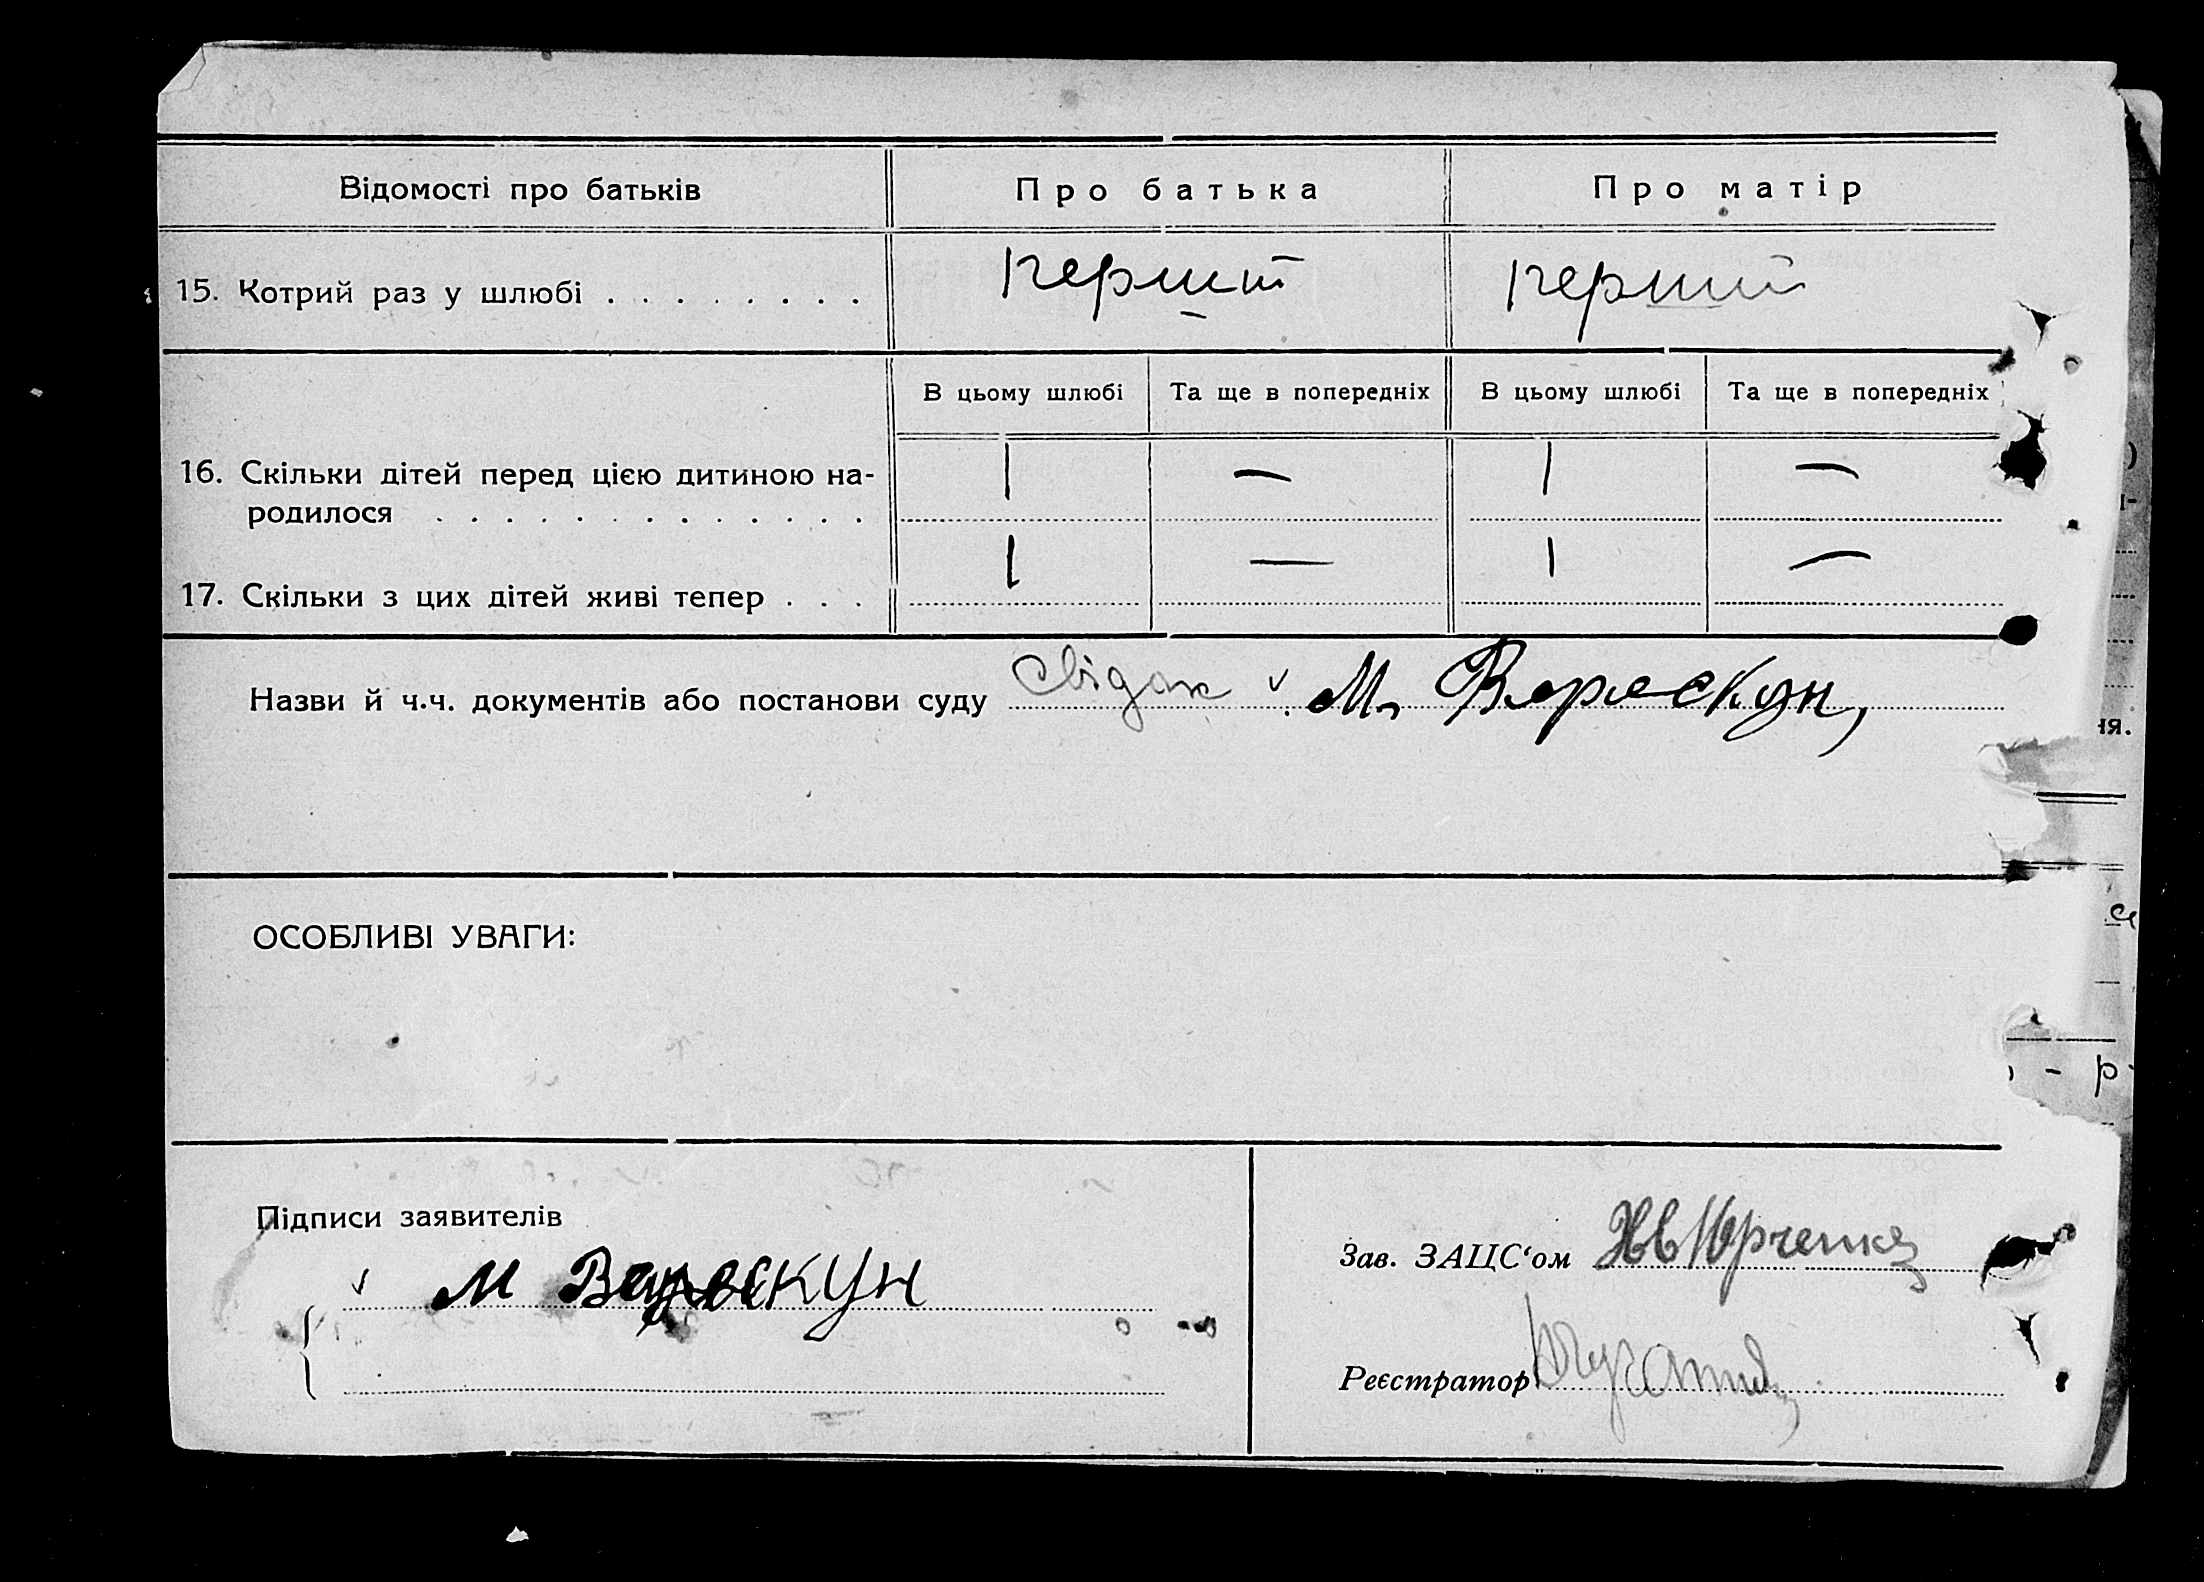 Відомості про батьків
Про батька
Про матір
15. Котрий раз у шлюбі . . . . . . . .
перший
перший
В цьому шлюбі
Та ще в попередніх
В цьому шлюбі
Та ще в попередніх
16. Скільки дітей перед цією дитиною на-
родилося . . . . . . . . . . . . .
1
—
1
—
17. Скільки з цих дітей живі тепер . . .
1
—
1
—
Назви й ч.ч. документів або постанови суду свідок v М. Верескун,
ня.
ОСОБЛИВІ УВАГИ:
- р
Підписи заявителів
v М Верескун
Зав. ЗАЦС‘ом Юрченко
Реєстратор